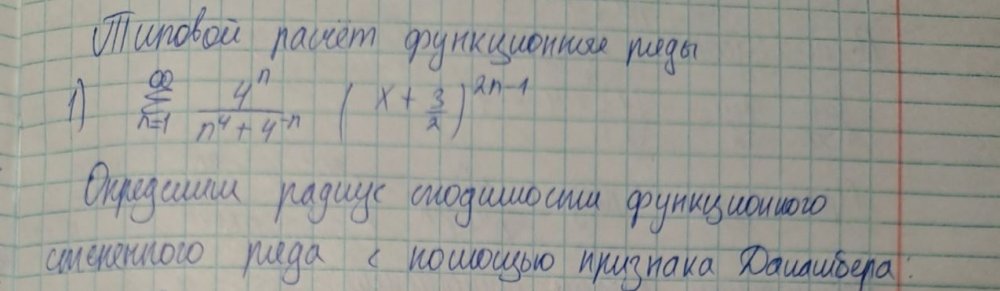 Типовой расчёт функционные ряды
1) ∞ Σ n=1 4^n / (n^4 + 4^-n) (x + 3/2)^2n-1
Определим радиус сходимости функционного
степенного ряда с помощью признака Даламбера: